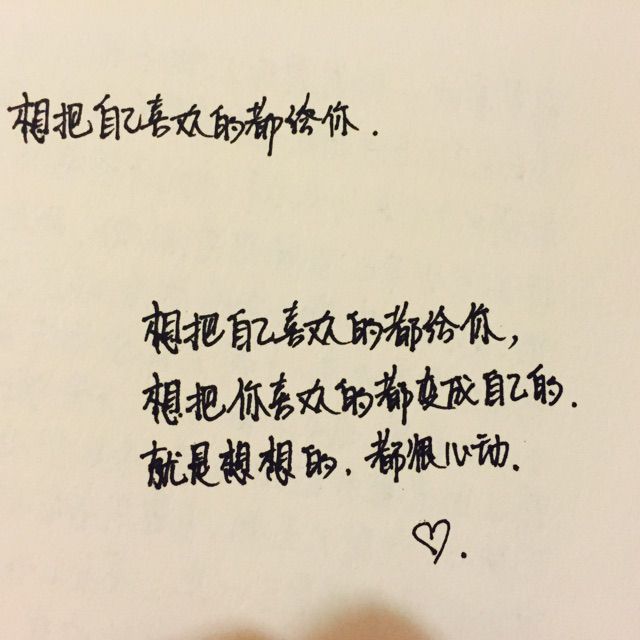 想把自己喜欢的都给你.
想把自己喜欢的都给你,
想把你喜欢的都变成自己的.
就是想想的.都很心动.
♡.